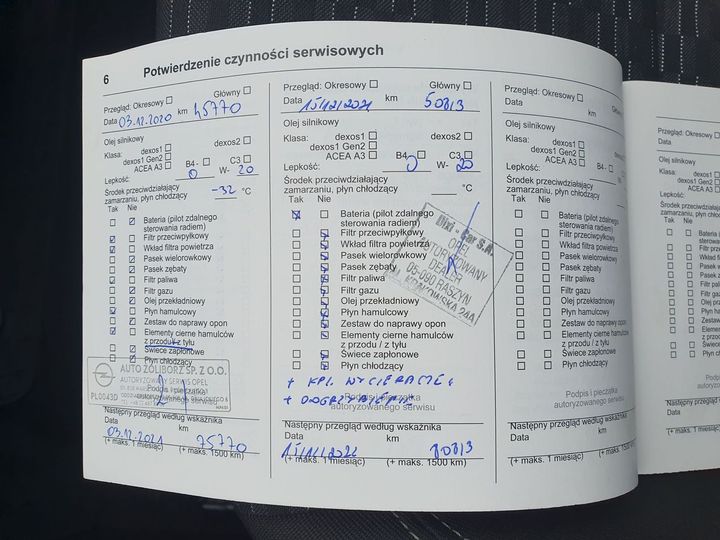 6 Potwierdzenie czynności serwisowych
Przegląd: Okresowy Główny
Data 03.12.2020 km 45770
Olej silnikowy
Klasa: dexos1 dexos2
dexos1 Gen2 B4- C3
ACEA A3
Lepkość: 0 W- 20
Środek przeciwdziałający
zamarzaniu, płyn chłodzący -32 °C
Tak Nie
Bateria (pilot zdalnego
sterowania radiem)
Filtr przeciwpyłkowy
Wkład filtra powietrza
Pasek wielorowkowy
Pasek zębaty
Filtr paliwa
Filtr gazu
Olej przekładniowy
Płyn hamulcowy
Zestaw do naprawy opon
Elementy cierne hamulców
z przodu / z tyłu
Świece zapłonowe
Płyn chłodzący
AUTO ŻOLIBORZ SP. Z O.O.
AUTORYZOWANY SERWIS OPEL
PL0043D
Podpis i pieczątka
autoryzowanego serwisu
Następny przegląd według wskaźnika
Data km
03.12.2021 75770
(+ maks. 1 miesiąc) (+ maks. 1500 km)
Przegląd: Okresowy Główny
Data 15/12/2021 km 50813
Olej silnikowy
Klasa: dexos1 dexos2
dexos1 Gen2
ACEA A3 B4 C3
Lepkość: 0 W- 20
Środek przeciwdziałający
zamarzaniu, płyn chłodzący °C
Tak Nie
Bateria (pilot zdalnego
sterowania radiem)
Filtr przeciwpyłkowy
Wkład filtra powietrza
Pasek wielorowkowy
Pasek zębaty
Filtr paliwa
Filtr gazu
Olej przekładniowy
Płyn hamulcowy
Zestaw do naprawy opon
Elementy cierne hamulców
z przodu / z tyłu
Świece zapłonowe
Płyn chłodzący
Dixi - Car S.A.
OPEL
AUTORYZOWANY
DEALER
05-090 RASZYN
AL. KRAKOWSKA 24A
+ KPL. WYCIERACZEK
+ ODGRZYBIANIE
Podpis i pieczątka
autoryzowanego serwisu
Następny przegląd według wskaźnika
Data km
80813
(+ maks. 1 miesiąc) (+ maks. 1500 km)
Przegląd: Okresowy Główny
Data km
Olej silnikowy
Klasa: dexos1 dexos2
dexos1 Gen2
ACEA A3 B4 - C3
Lepkość: W-
Środek przeciwdziałający
zamarzaniu, płyn chłodzący °C
Tak Nie
Bateria (pilot zdalnego
sterowania radiem)
Filtr przeciwpyłkowy
Wkład filtra powietrza
Pasek wielorowkowy
Pasek zębaty
Filtr paliwa
Filtr gazu
Olej przekładniowy
Płyn hamulcowy
Zestaw do naprawy opon
Elementy cierne hamulców
z przodu / z tyłu
Świece zapłonowe
Płyn chłodzący
Podpis i pieczątka
autoryzowanego serwisu
Następny przegląd według wskaźnika
Data km
(+ maks. 1 miesiąc) (+ maks. 1500 km)
Przegląd: Okresowy
Data
Olej silnikowy
Klasa: dexos1
dexos1 Gen2
ACEA A3
Lepkość:
Środek przeciwdziałający
zamarzaniu, płyn chłodzący
Tak Nie